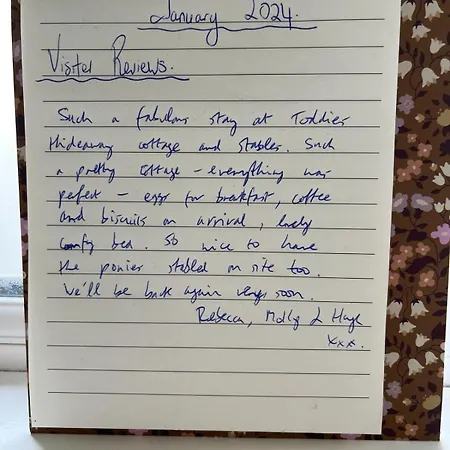 January 2024.
Visitor Reviews.
Such a fabulous stay at Toddies
Hideaway cottage and stables. Such
a pretty cottage - everything was
perfect - eggs for breakfast, coffee
and biscuits on arrival, lovely
comfy bed. So nice to have
the ponies stabled on site too.
We'll be back again very soon.
Rebecca, Molly &
xxx.